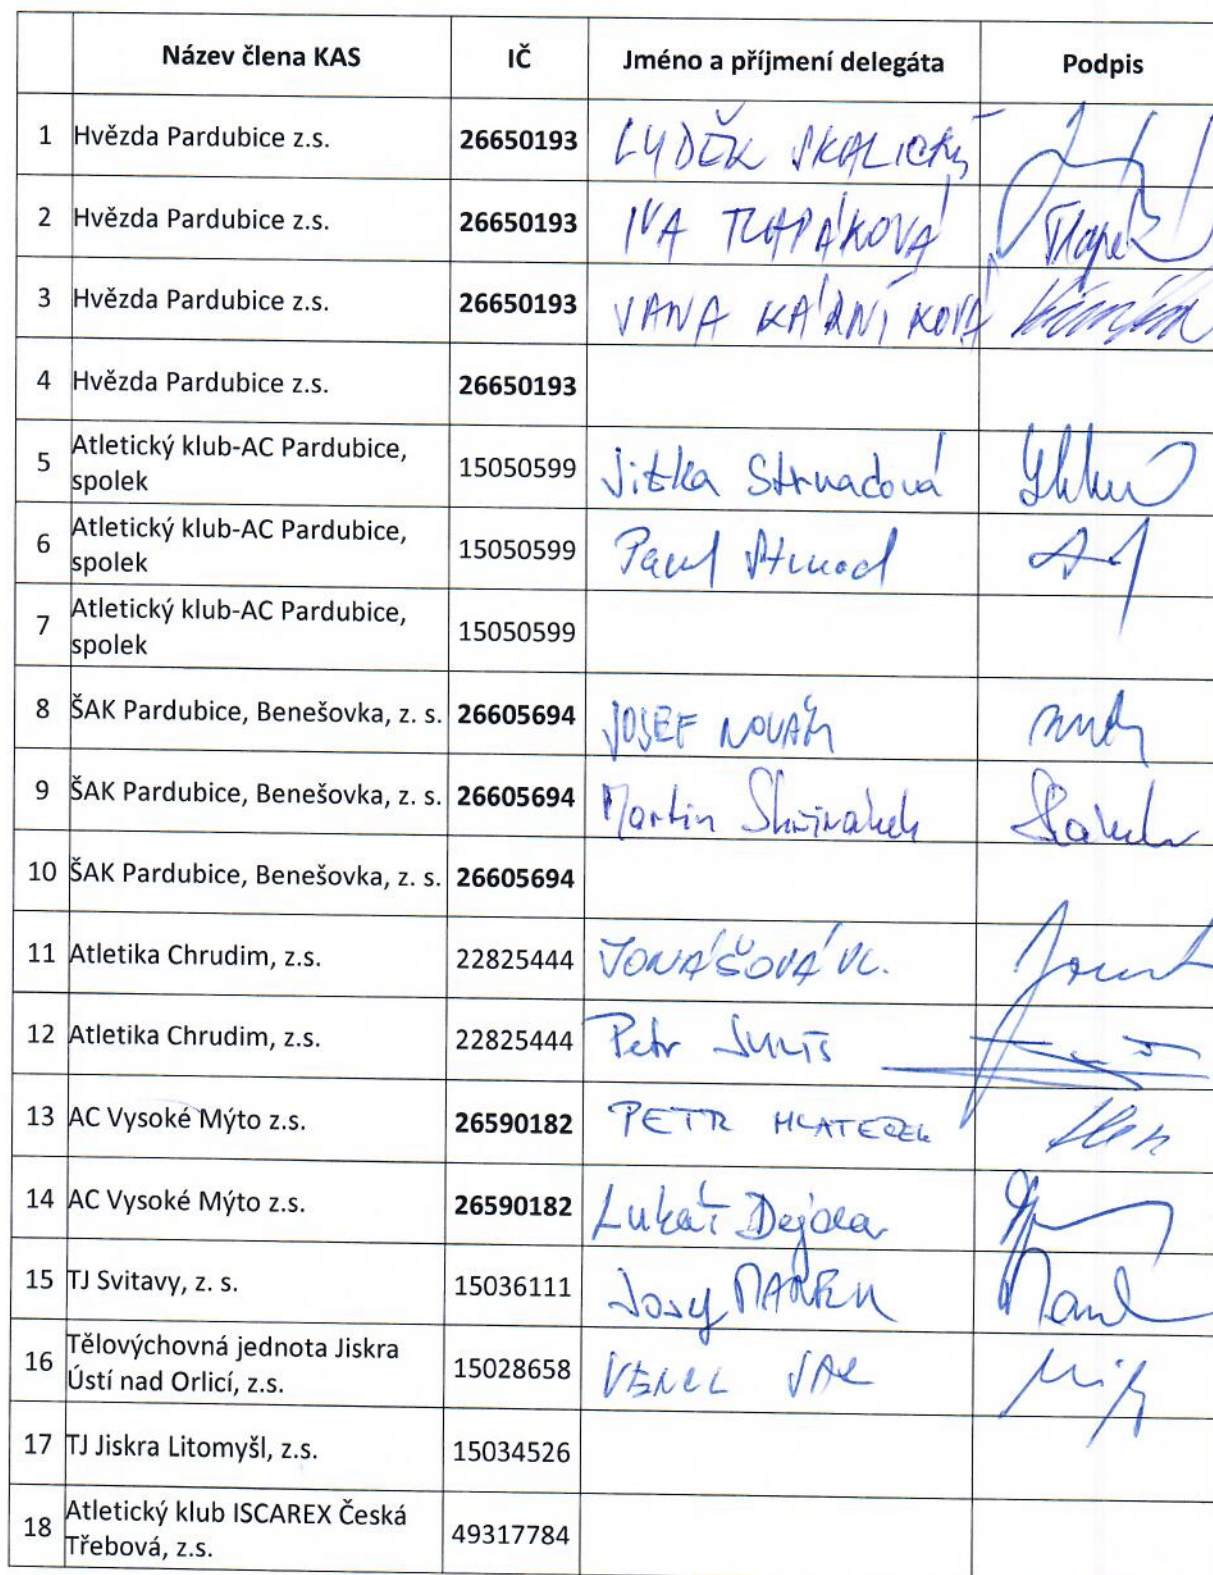 Název člena KAS IČ Jméno a příjmení delegáta Podpis
1 Hvězda Pardubice z.s. 26650193 LUDĚK SKALICKÝ
2 Hvězda Pardubice z.s. 26650193 IVA TLAPÁKOVÁ
3 Hvězda Pardubice z.s. 26650193 JANA KÁRNÍKOVÁ
4 Hvězda Pardubice z.s. 26650193
5 Atletický klub-AC Pardubice,
spolek 15050599 Jitka Strnadová
6 Atletický klub-AC Pardubice,
spolek 15050599 Pavel Strnad
7 Atletický klub-AC Pardubice,
spolek 15050599
8 ŠAK Pardubice, Benešovka, z. s. 26605694 JOSEF NOVÁK
9 ŠAK Pardubice, Benešovka, z. s. 26605694 Martin
10 ŠAK Pardubice, Benešovka, z. s. 26605694
11 Atletika Chrudim, z.s. 22825444 JONÁŠOVÁ VL.
12 Atletika Chrudim, z.s. 22825444 Petr
13 AC Vysoké Mýto z.s. 26590182 PETR
14 AC Vysoké Mýto z.s. 26590182 Lukáš Dejdar
15 TJ Svitavy, z. s. 15036111 Josef MAREK
16 Tělovýchovná jednota Jiskra
Ústí nad Orlicí, z.s. 15028658
17 TJ Jiskra Litomyšl, z.s. 15034526
18 Atletický klub ISCAREX Česká
Třebová, z.s. 49317784